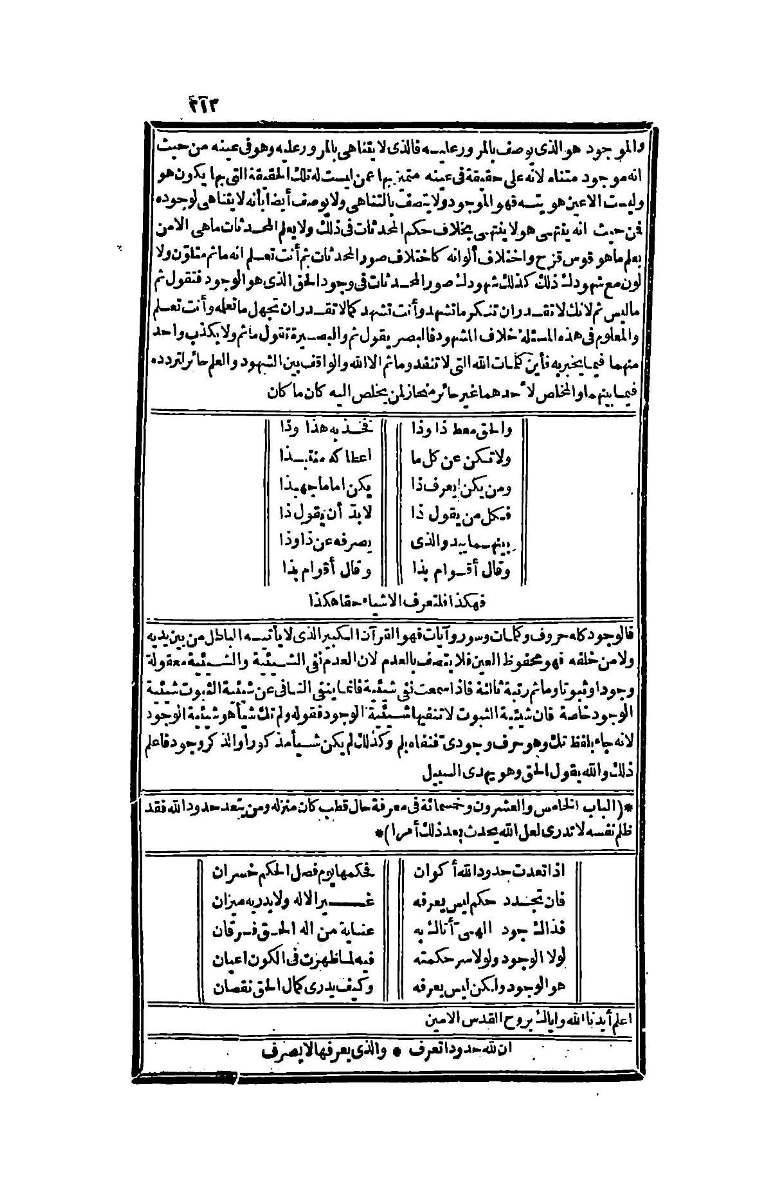 والموجود هو الذى يوصف بالمرور عليه فالذى لا يتناهى بالمرور عليه وهو فى عينه من حيث
انه موجود متناه لانه على حقيقة فى عينه متميز بها عمن ليست له تلك الحقيقة التى بها يكون هو
وليست الاعين هويته فهو الموجود ولا يتصف بالتناهى ولا يوصف أيضا بأنه لا يتناهى لوجوده
فمن حيث انه ينتهى هو لا ينتهى بخلاف حكم المحدثات فى ذلك ولا يعلم المحدثات ماهى الا من
يعلم ما هو قوس قزح واختلاف ألوانه كاختلاف صور المحدثات ثم أنت تعلم انه ماثم متلون ولا
لون مع شهودك ذلك كذلك شهودك صور المحدثات فى وجود الحق الذى هو الوجود فتقول ثم
ماليس ثم لانك لا تقدر ان تنكر ما تشهد وأنت تشهد كما لا تقدر ان تجهل ما تعلمه وأنت تعلم
والمعلوم فى هذه المسئلة خلاف المشهود فالبصر يقول ثم والبصيرة تقول ماثم ولا يكذب واحد
منهما فيما يخبر به فأين كلمات الله التى لا تنفد وماثم الا الله والواقف بين الشهود والعلم حائر لتردده
فيما بينهما والمخلص لأحدهما غير حائر منحاز لمن يخلص اليه كان ما كان
والحق معط ذا وذا فخذ به هذا وذا
ولا تكن عن كل ما اعطا كه منتبذا
ومن يكن يعرف ذا يكن اماما جهبذا
فكل من يقول ذا لابد أن يقول ذا
بينهما يبدو الذى يصرفه عن ذا وذا
وقال أقوام بذا وقال أقوام بذا
فهكذا فلتعرف الاشياء حقا هكذا
فالوجود كله حروف وكلمات وسور وآيات فهو القرآن الكبير الذى لا يأتيه الباطل من بين يديه
ولا من خلفه فهو محفوظ العين فلا يتصف بالعدم لان العدم نفى الشيئية والشيئية معقولة
وجودا وثبوتا وماثم رتبة ثالثة فاذا سمعت نفى شيئية فانما ينفى النافى عن شيئية الثبوت شيئية
الوجود خاصة فان شيئية الثبوت لا تنفيها شيئية الوجود فقوله ولم تك شيأ هو شيئية الوجود
لانه جاء بلفظ تك وهو حرف وجودى فنفاه بلم وكذلك لم يكن شيأ مذكورا والذكر وجود فاعلم
ذلك والله يقول الحق وهو يهدى السبيل
*(الباب الخامس والعشرون وخمسمائة فى معرفة حال قطب كان منزله ومن يتعد حدود الله فقد
ظلم نفسه لا تدرى لعل الله يحدث بعد ذلك أمرا)*
اذا تعدت حدود الله أكوان فحكمها يوم فصل الحكم خسران
فان تجدد حكم ليس يعرفه غير الاله ولا يدريه ميزان
فذاك جود الهى أتاك به عناية من اله الحق فرقان
لولا الوجود ولولا سر حكمته فيه لما ظهرت فى الكون اعيان
هو الوجود ولكن ليس يعرفه وكيف يدرى كمال الحق نقصان
اعلم أيدنا الله واياك بروح القدس الامين
ان لله حدودا تعرف * والذى يعرفها لا يصرف